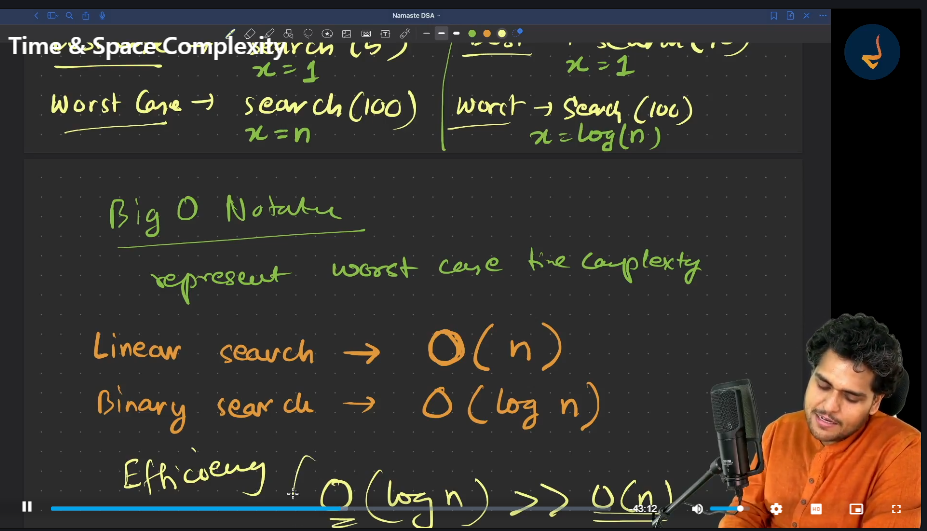 Namaste DSA
Time & Space Complexity
search (
x = 1
x = 1
Worst Case → search (100)
x = n
Worst → Search (100)
x = log(n)
Big O Notatn
represent worst case time complexty
Linear search → O(n)
Binary search → O(log n)
Efficieny { O(log n) >> O(n)
43:12
HD